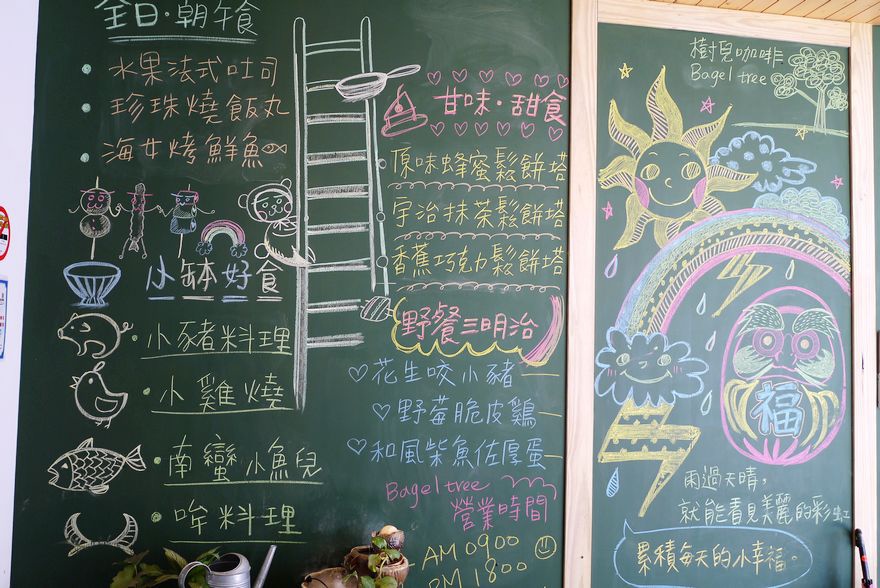 全日·朝午食
水果法式吐司
珍珠燒飯丸
海女烤鮮魚
小缽好食
小豬料理
小雞燒
南蠻小魚兒
哞料理
甘味·甜食
原味蜂蜜鬆餅塔
宇治抹茶鬆餅塔
香蕉巧克力鬆餅塔
野餐三明治
花生咬小豬
野莓脆皮雞
和風柴魚佐厚蛋
Bagel tree
營業時間
AM 0900
PM 1800
樹兒咖啡
Bagel tree
福
雨過天晴，
就能看見美麗的彩虹
累積每天的小幸福。